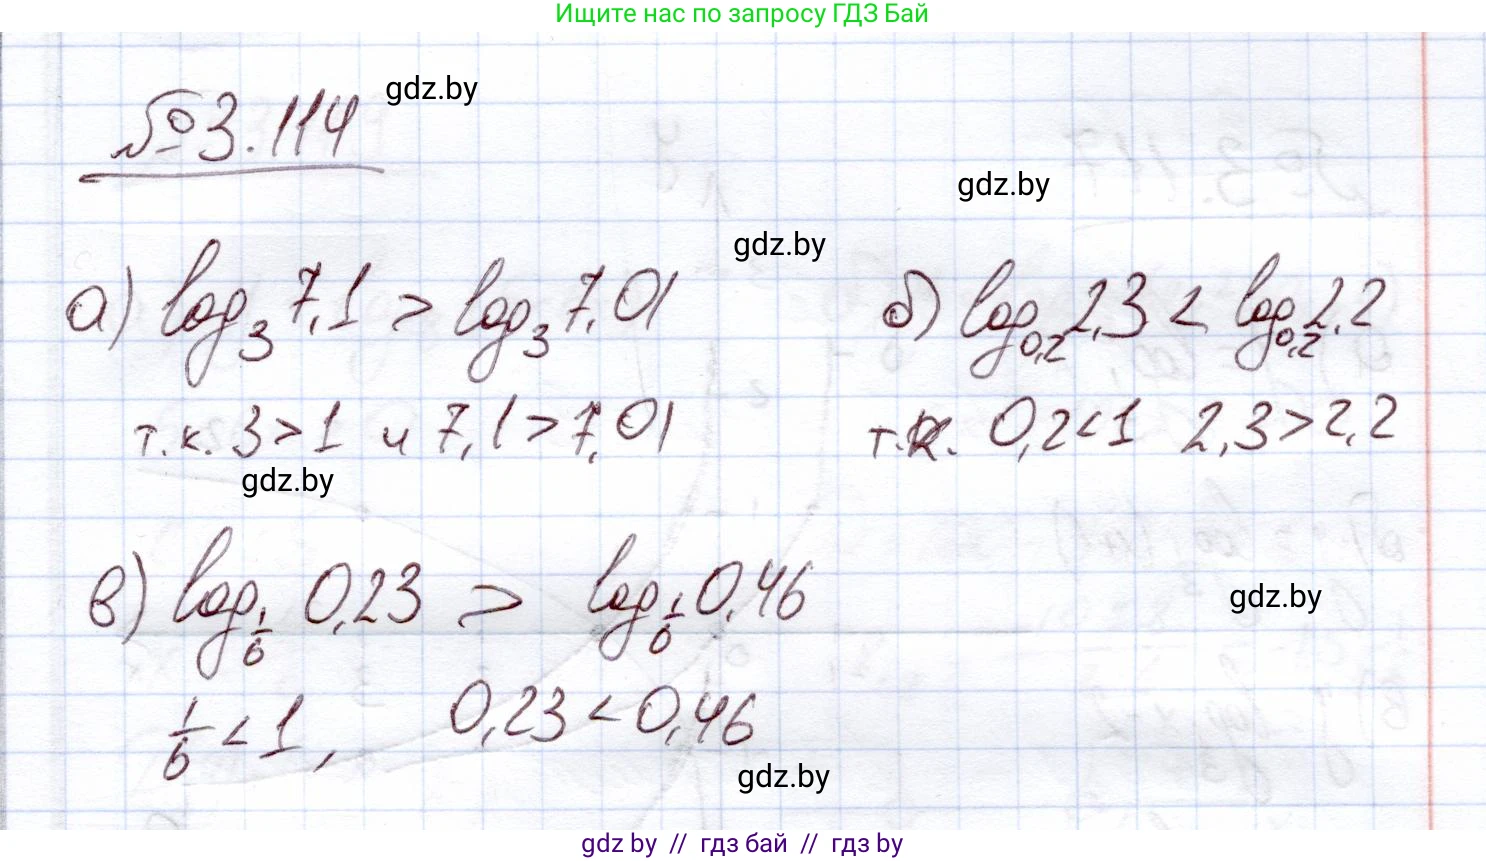 Ищите нас по запросу ГДЗ Бай
№3.114
gdz.by
gdz.by
gdz.by
а) log₃7,1 > log₃7,01
б) log₀,₂2,3 < log₀,₂2,2
т.к. 3>1 и 7,1>7,01
т.к. 0,2<1 2,3>2,2
gdz.by
в) log_{1/6} 0,23 > log_{1/6} 0,46
gdz.by
1/6 < 1, 0,23 < 0,46
gdz.by
gdz.by // гдз бай // гдз by